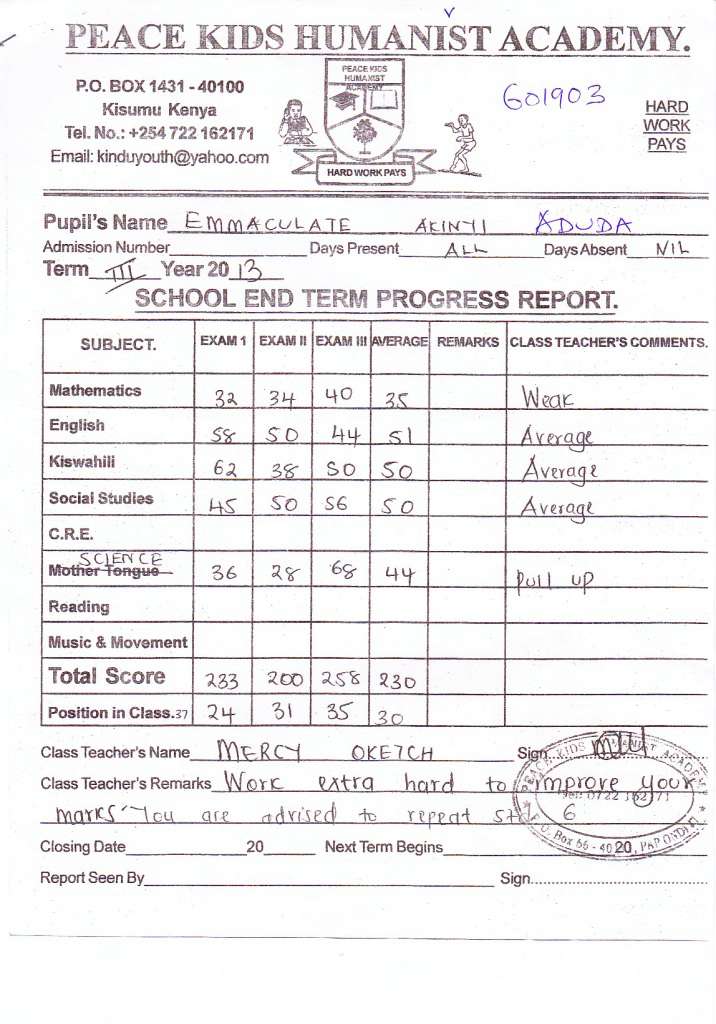 PEACE KIDS HUMANIST ACADEMY.
P.O. BOX 1431 - 40100
Kisumu Kenya
Tel. No.: +254 722 162171
Email: kinduyouth@yahoo.com
PEACE KIDS
HUMANIST
ACADEMY
HARD WORK PAYS
601903
HARD
WORK
PAYS
Pupil's Name EMMACULATE AKINYI ADUDA
Admission Number Days Present ALL Days Absent NIL
Term III Year 20 13
SCHOOL END TERM PROGRESS REPORT.
SUBJECT. EXAM 1 EXAM II EXAM III AVERAGE REMARKS CLASS TEACHER'S COMMENTS.
Mathematics 32 34 40 35 Weak
English 58 50 44 51 Average
Kiswahili 62 38 50 50 Average
Social Studies 45 50 56 50 Average
C.R.E.
SCIENCE
Mother Tongue 36 28 68 44 Pull up
Reading
Music & Movement
Total Score 233 200 258 230
Position in Class.37 24 31 35 30
Class Teacher's Name MERCY OKETCH Sign
Class Teacher's Remarks Work extra hard to improve your
marks. You are advised to repeat std 6
Closing Date 20 Next Term Begins 20
Report Seen By Sign
PEACE KIDS HUMANIST ACADEMY
P.O. Box 66 - 40